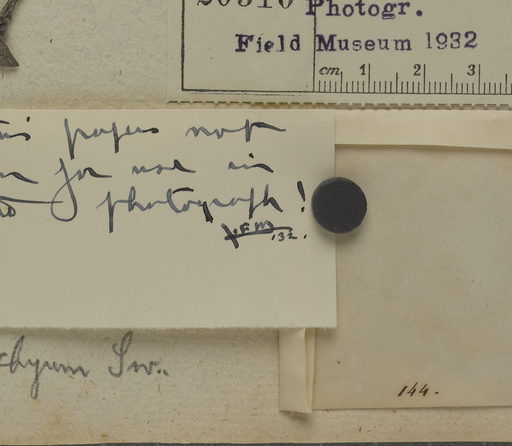 20310 Photogr.
Field Museum 1932
cm 1 2 3
papers not
for use in
photograph!
J.F.M.
'32.
chyum Sw..
144.